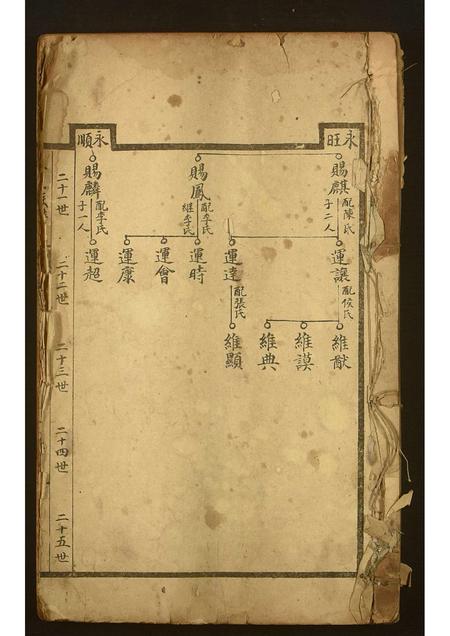 永旺
永順
賜麒
配陳氏
子二人
賜鳳
配季氏
繼李氏
賜麟
配李氏
子一人
運讓
配侯氏
運達
配張氏
運時
運會
運康
運超
維猷
維謨
維典
維顯
二十一世
二十二世
二十三世
二十四世
二十五世